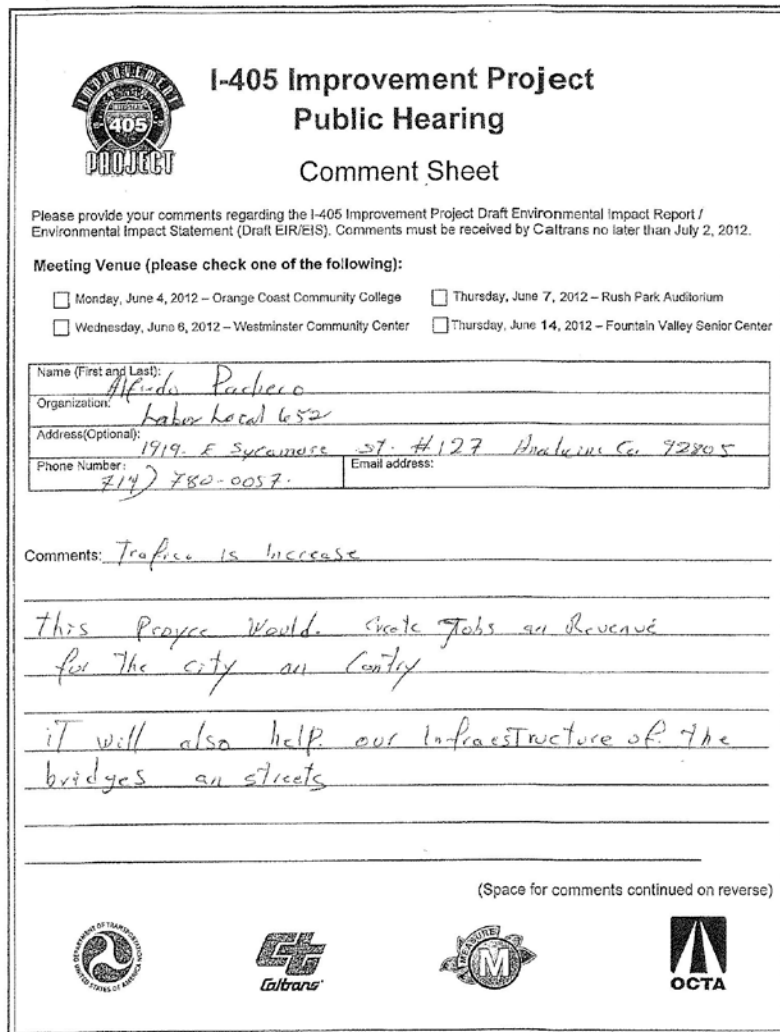 IMPROVEMENT
INTERSTATE
405
PROJECT
I-405 Improvement Project
Public Hearing
Comment Sheet
Please provide your comments regarding the I-405 Improvement Project Draft Environmental Impact Report /
Environmental Impact Statement (Draft EIR/EIS). Comments must be received by Caltrans no later than July 2, 2012.
Meeting Venue (please check one of the following):
Monday, June 4, 2012 – Orange Coast Community College
Thursday, June 7, 2012 – Rush Park Auditorium
Wednesday, June 6, 2012 – Westminster Community Center
Thursday, June 14, 2012 – Fountain Valley Senior Center
Name (First and Last): Alfredo Pacheco
Organization: Labor Local 652
Address(Optional): 1919. E Sycamore ST. #127 Ca. 92805
Phone Number: 714) 780-0057.
Email address:
Comments: Trafico is Increase
this Proyce Would. create Jobs an Revenue
for The city an Contry
iT will also help. our InfraesTructure of. The
bridges an streets
(Space for comments continued on reverse)
DEPARTMENT OF TRANSPORTATION
UNITED STATES OF AMERICA
Caltrans
MEASURE
M
OCTA